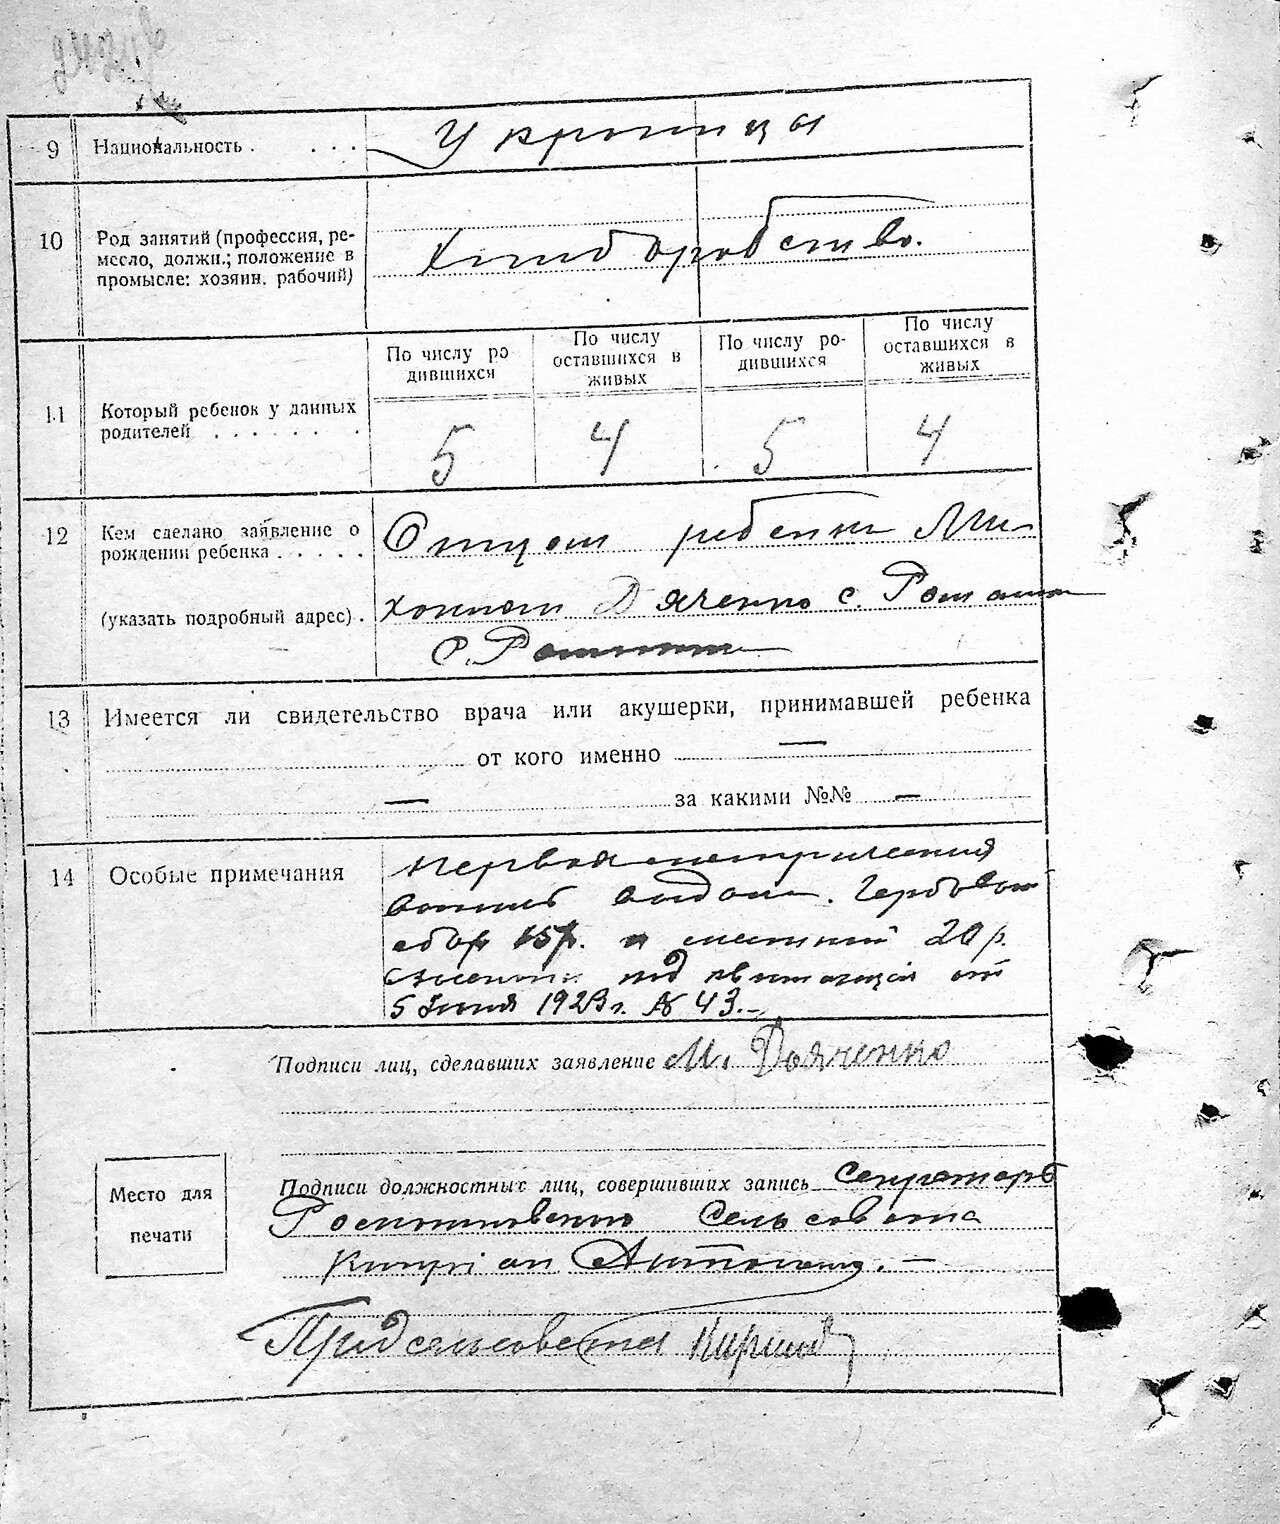 9 Национальность . . . . Украинцы
10 Род занятий (профессия, ре-
месло, должн.; положение в
промысле: хозяин, рабочий)
Хлиборобство.
11 Который ребенок у данных
родителей . . . . . . .
По числу ро
дившихся
По числу
оставшихся в
живых
По числу ро-
дившихся
По числу
оставшихся в
живых
5 4 5 4
12 Кем сделано заявление о
рождении ребенка . . . . .
(указать подробный адрес) .
Отцом ребенка Ми-
Дяченко с.
с.
13 Имеется ли свидетельство врача или акушерки, принимавшей ребенка
— от кого именно —
— за какими №№ —
14 Особые примечания
первая
выпись выдана. Гербовый
сбор 15р. и местный 20 р.
под квитанцией от
5 Июня 1923 г. № 43.–
Подписи лиц, сделавших заявление М. Дьяченко
Подписи должностных лиц, совершивших запись Секретарь
Сельсовета
Место для
печати
Предсельсовета